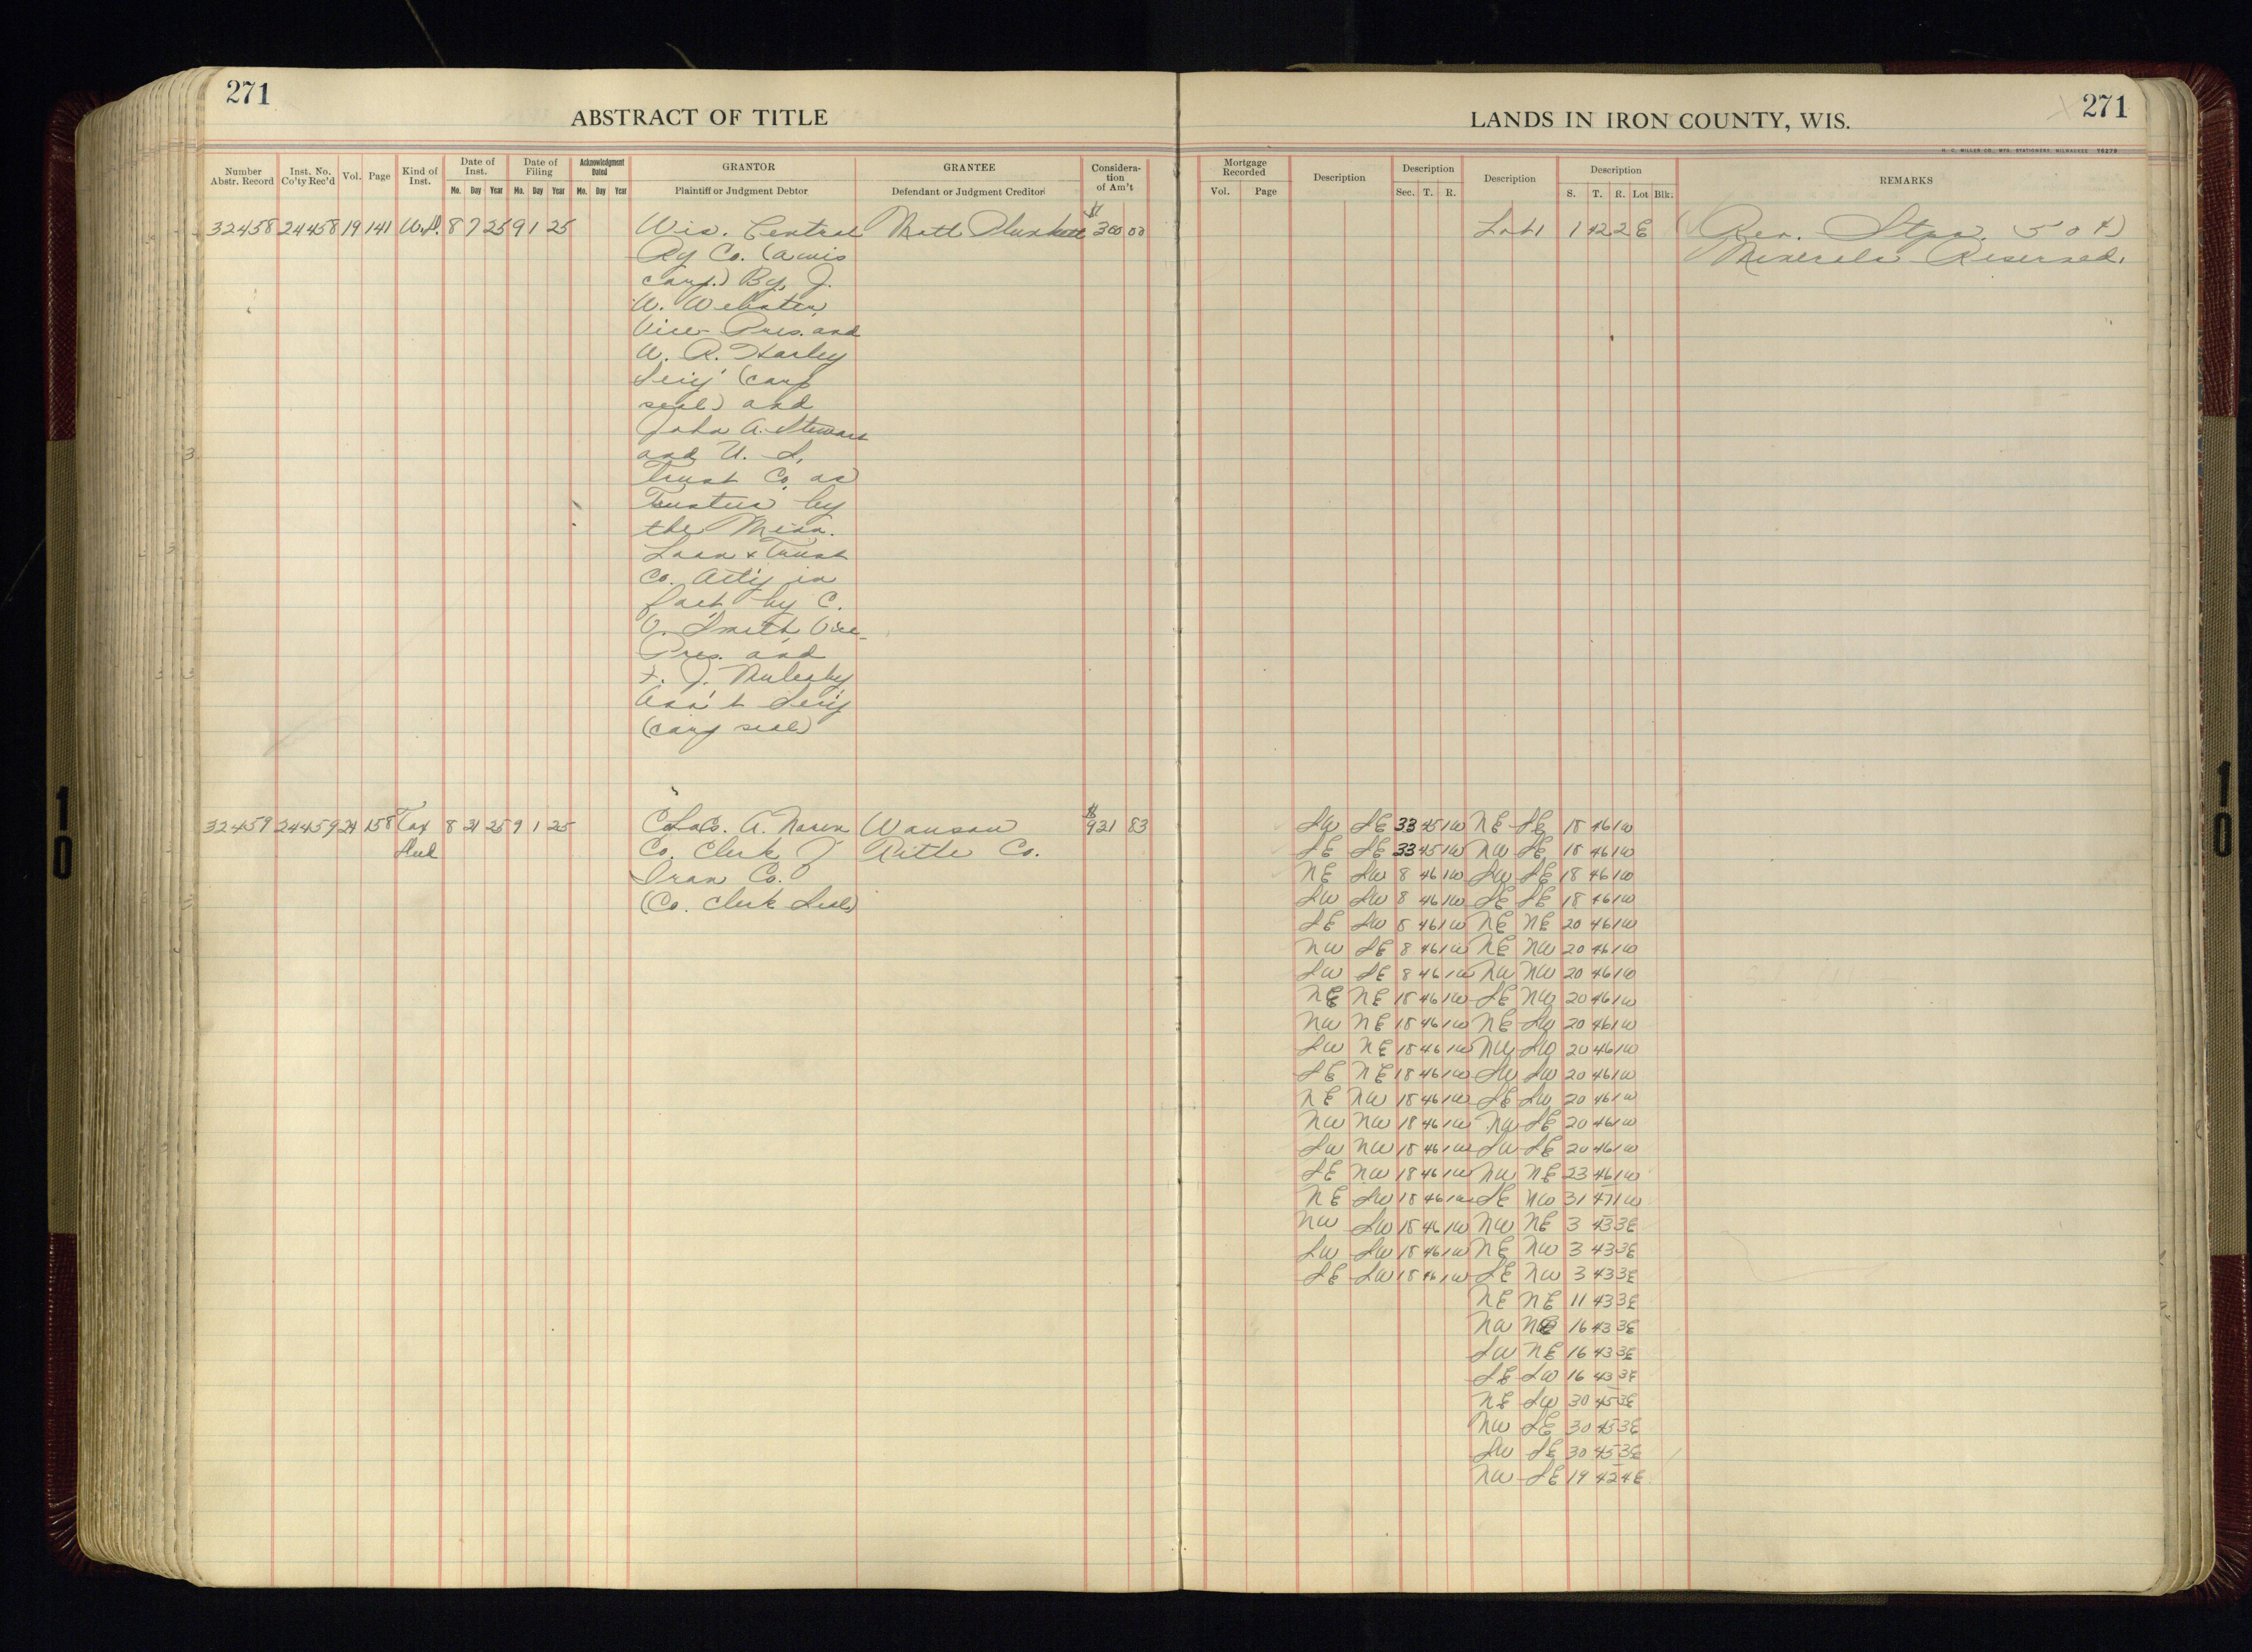 271
ABSTRACT OF TITLE
LANDS IN IRON COUNTY, WIS.
271
H. C. MILLER CO., MFG. STATIONERS, MILWAUKEE 76279
Number Abstr. Record | Inst. No. Co'ty Rec'd | Vol. | Page | Kind of Inst. | Date of Inst. Mo. Day Year | Date of Filing Mo. Day Year | Acknowledgment Dated Mo. Day Year | GRANTOR Plaintiff or Judgment Debtor | GRANTEE Defendant or Judgment Creditor | Considera- tion of Am't | Mortgage Recorded Vol. Page | Description | Description Sec. T. R. | Description | Description S. T. R. Lot Blk. | REMARKS
32458 24458 19 141 W.D. 8 7 25 9 1 25 Wis. Central Matt Plunkett $300 00 Lot 1 1 42 2E (Rev. Stps. 50¢)
Ry Co. (a wis Minerals Reserved.
corp.) By J.
W. Webster
Vice Pres. and
W. R. Harley
Sec'y (corp
seal) and
John A. Stewart
and U. S.
Trust Co. as
Trustees by
the Minn.
Loan & Trust
Co. Att'y in
fact by C.
V. Smith, Vice
Pres. and
F. J. Mulcahy
Ass't Sec'y
(corp seal)
32459 24459 24 158 Tax 8 21 25 9 1 25 A. Naren Wausau $921 83 SW SE 33 45 1W NE SE 18 46 1W
Deed Co. Clerk Title Co. SE SE 33 45 1W NW SE 18 46 1W
Iron Co. NE SW 8 46 1W SW SE 18 46 1W
(Co. Clerk Seal) SW SW 8 46 1W SE SE 18 46 1W
SE SW 8 46 1W NE NE 20 46 1W
NW SE 8 46 1W NE NW 20 46 1W
SW SE 8 46 1W NW NW 20 46 1W
NE NE 18 46 1W SE NW 20 46 1W
NW NE 18 46 1W NE SW 20 46 1W
SW NE 18 46 1W NW SW 20 46 1W
SE NE 18 46 1W SW SW 20 46 1W
NE NW 18 46 1W SE SW 20 46 1W
NW NW 18 46 1W NW SE 20 46 1W
SW NW 18 46 1W SW SE 20 46 1W
SE NW 18 46 1W NW NE 23 46 1W
NE SW 18 46 1W SE NW 31 47 1W
NW SW 18 46 1W NW NE 3 43 3E
SW SW 18 46 1W NE NW 3 43 3E
SE SW 18 46 1W SE NW 3 43 3E
NE NE 11 43 3E
NW NE 16 43 3E
SW NE 16 43 3E
SE SW 16 43 3E
NE SW 30 45 3E
NW SE 30 45 3E
SW SE 30 45 3E
NW SE 19 42 4E
10
10